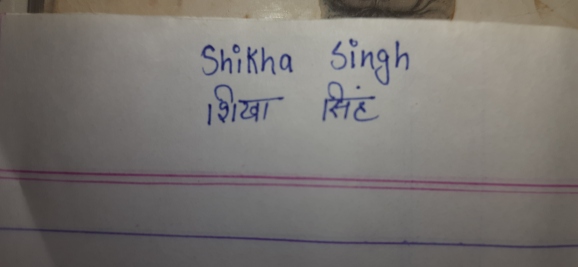 Shikha Singh
शिखा सिंह